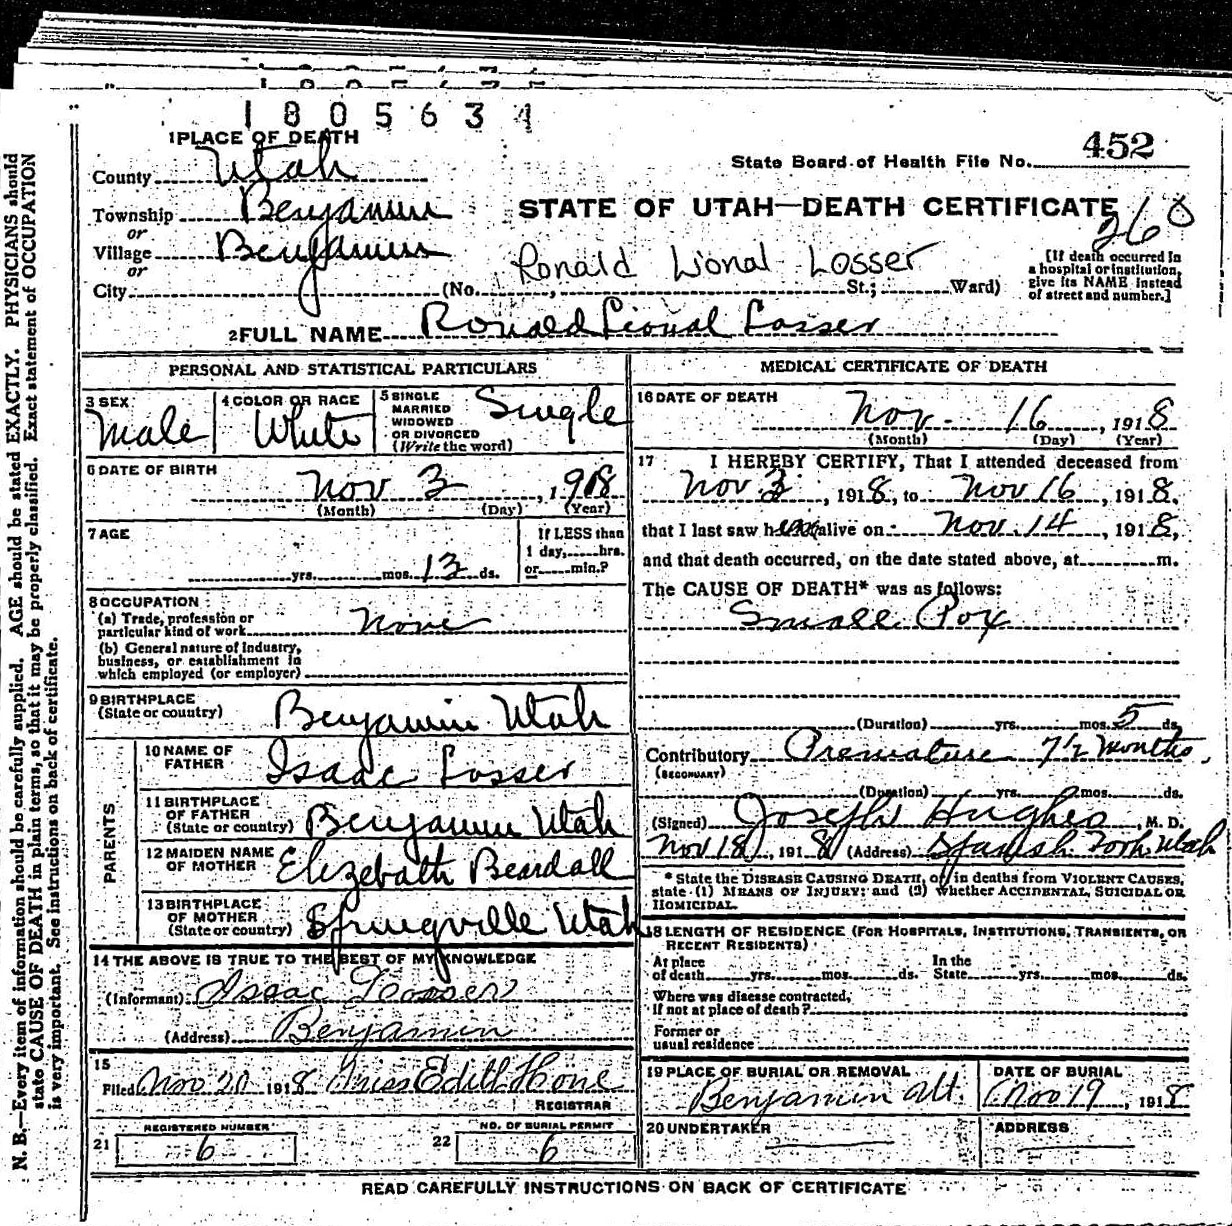 1805634
1 PLACE OF DEATH
452
State Board of Health File No.
County Utah
Township Benjamin
STATE OF UTAH—DEATH CERTIFICATE
260
or
Village Benjamin
or
Ronald Lional Losser
City (No. , St.; Ward)
[If death occurred in
a hospital or institution,
give its NAME instead
of street and number.]
2 FULL NAME Ronald Lional Losser
PERSONAL AND STATISTICAL PARTICULARS
3 SEX
Male
4 COLOR OR RACE
White
5 SINGLE
MARRIED
WIDOWED
OR DIVORCED
(Write the word)
Single
6 DATE OF BIRTH
Nov 3, 1918
(Month) (Day) (Year)
7 AGE
yrs. mos. 13 ds.
If LESS than
1 day, hrs.
or min.?
8 OCCUPATION
(a) Trade, profession or
particular kind of work None
(b) General nature of industry,
business, or establishment in
which employed (or employer)
9 BIRTHPLACE
(State or country) Benjamin Utah
PARENTS
10 NAME OF
FATHER Isaac Losser
11 BIRTHPLACE
OF FATHER
(State or country) Benjamin Utah
12 MAIDEN NAME
OF MOTHER Elizebath Beardall
13 BIRTHPLACE
OF MOTHER
(State or country) Springville Utah
14 THE ABOVE IS TRUE TO THE BEST OF MY KNOWLEDGE
(Informant) Isaac Losser
(Address) Benjamin
15
Filed Nov 20 1918 Miss Edith Hone
REGISTRAR
21 REGISTERED NUMBER
6
22 NO. OF BURIAL PERMIT
6
MEDICAL CERTIFICATE OF DEATH
16 DATE OF DEATH
Nov. 16, 1918
(Month) (Day) (Year)
17 I HEREBY CERTIFY, That I attended deceased from
Nov 3, 1918, to Nov 16, 1918,
that I last saw him alive on Nov. 14, 1918,
and that death occurred, on the date stated above, at m.
The CAUSE OF DEATH* was as follows:
Small Pox
(Duration) yrs. mos. 5 ds.
Contributory Premature 7 1/2 Months.
(SECONDARY)
(Duration) yrs. mos. ds.
(Signed) Joseph Hughes, M. D.
Nov 18, 1918 (Address) Spanish Fork Utah
* State the DISEASE CAUSING DEATH, or, in deaths from VIOLENT CAUSES,
state (1) MEANS OF INJURY; and (2) whether ACCIDENTAL, SUICIDAL OR
HOMICIDAL.
18 LENGTH OF RESIDENCE (FOR HOSPITALS, INSTITUTIONS, TRANSIENTS, OR
RECENT RESIDENTS)
At place
of death yrs. mos. ds.
In the
State yrs. mos. ds.
Where was disease contracted,
if not at place of death?
Former or
usual residence
19 PLACE OF BURIAL OR REMOVAL
Benjamin Ut.
DATE OF BURIAL
Nov 19, 1918
20 UNDERTAKER
ADDRESS
READ CAREFULLY INSTRUCTIONS ON BACK OF CERTIFICATE
N. B.—Every item of information should be carefully supplied. AGE should be stated EXACTLY. PHYSICIANS should
state CAUSE OF DEATH in plain terms, so that it may be properly classified. Exact statement of OCCUPATION
is very important. See instructions on back of certificate.